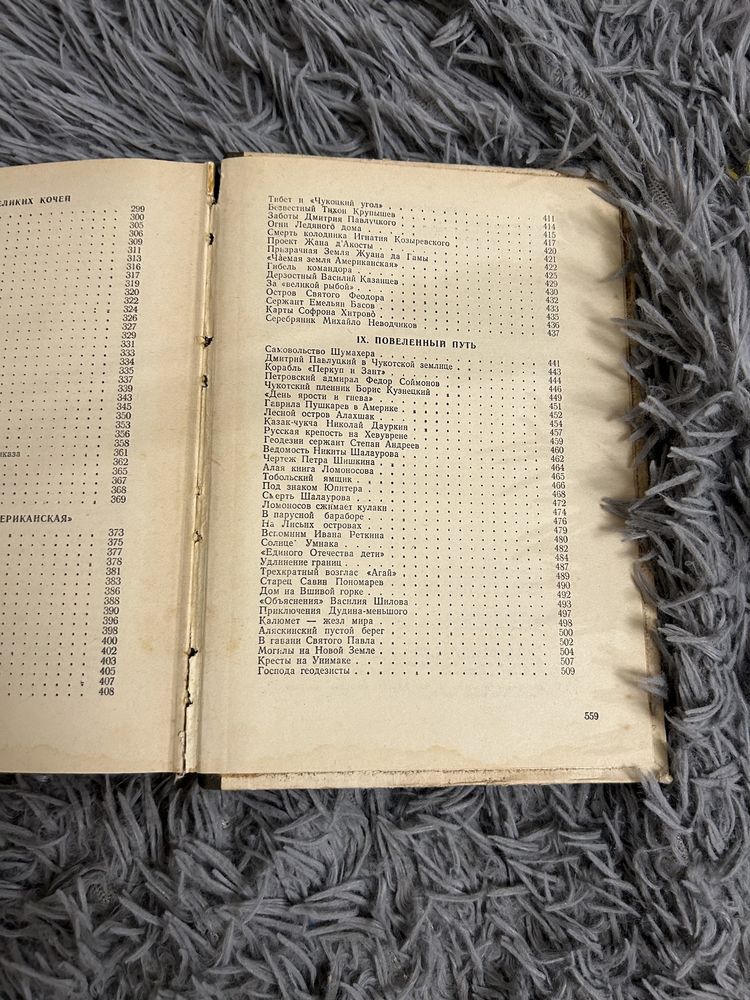 ЕЛИКИХ КОЧЕЙ
299
300
305
306
309
311
313
316
317
319
320
322
324
326
327
329
331
333
334
335
337
339
343
345
350
353
356
358
иказа 361
362
365
367
368
369
ЕРИКАНСКАЯ»
373
375
377
378
381
383
386
388
390
396
398
400
402
403
405
407
408
Тибет и «Чукоцкий угол» 411
Безвестный Тихон Крупышев 414
Заботы Дмитрия Павлуцкого 415
Огни Ледяного дома 417
Смерть колодника Игнатия Козыревского 420
Проект Жана д'Акосты 421
Призрачная Земля Жуана да Гамы 422
«Чаемая земля Американская» 425
Гибель командора 429
Дерзостный Василий Казанцев 430
За «великой рыбой» 432
Остров Святого Феодора 433
Сержант Емельян Басов 435
Карты Софрона Хитрово 436
Серебряник Михайло Неводчиков 437
IX. ПОВЕЛЕННЫЙ ПУТЬ
Самовольство Шумахера 441
Дмитрий Павлуцкий в Чукотской землице 443
Корабль «Перкуп и Зант» 444
Петровский адмирал Федор Соймонов 446
Чукотский пленник Борис Кузнецкий 449
«День ярости и гнева» 451
Гаврила Пушкарев в Америке 452
Лесной остров Алахшак 454
Казак-чукча Николай Дауркин 457
Русская крепость на Хевуврене 459
Геодезии сержант Степан Андреев 460
Ведомость Никиты Шалаурова 462
Чертеж Петра Шишкина 464
Алая книга Ломоносова 465
Тобольский ямщик 466
Под знаком Юпитера 468
Смерть Шалаурова 472
Ломоносов сжимает кулаки 474
В парусной бараборе 476
На Лисьих островах 479
Вспомним Ивана Реткина 480
Солнце Умнака 482
«Единого Отечества дети» 484
Удлинение границ 487
Трехкратный возглас «Агай» 489
Старец Савин Пономарев 490
Дом на Вшивой горке 492
«Объяснения» Василия Шилова 493
Приключения Дудина-меньшого 497
Калюмет — жезл мира 498
Аляскинский пустой берег 500
В гавани Святого Павла 502
Могилы на Новой Земле 504
Кресты на Унимаке 507
Господа геодезисты 509
559